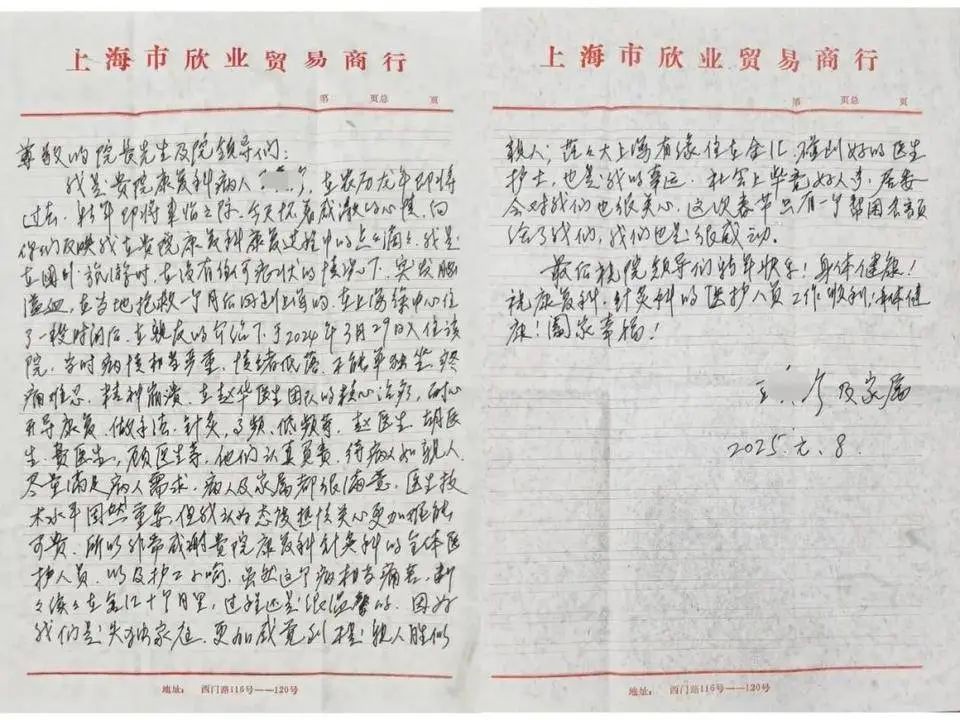 上海市欣业贸易商行
第 页总 页
尊敬的院长先生及院领导们:
我是贵院康复科病人 ，在农历龙年即将
过去，新年即将来临之际，今天抱着感激的心情，向
你们反映我在贵院康复科康复过程中的点点滴滴。我是
在国外旅游时，在没有任何症状的情况下，突发脑
溢血，在当地抢救一个月后回到上海的，在上海徐中心住
了一段时间后，在亲友的介绍下于2024年3月29日入住该
院，当时病情相当严重，情绪低落，不能单独坐，疼
痛难忍，精神崩溃，在赵华医生团队的精心治疗，耐心
开导康复，做手法，针灸，高频、低频等，赵医生，胡医
生，费医生，顾医生等，他们认真负责，待病人如亲人，
尽量满足病人需求，病人及家属都很满意，医生技
术水平固然重要，但我认为态度热情关心更加难能
可贵，所以非常感谢贵院康复科针灸科的全体医
护人员，以及护工小喻，虽然这个病相当痛苦，断
断续续在金汇十个月里，过程还是很温馨的，因为
我们是失独家庭，更加感觉到不是亲人胜似
地址： 西门路116号——120号
上海市欣业贸易商行
第 页总 页
亲人；茫茫大上海有缘住在金汇，碰到好的医生
护士，也是我的幸运，社会上毕竟好人多，居委
会对我们也很关心，这次春节只有一个帮困名额
给了我们，我们也是很感动。
最后祝院领导们新年快乐！身体健康！
祝康复科，针灸科的医护人员工作顺利！身体健
康！阖家幸福！
王 及家属
2025.元.8.
地址： 西门路116号——120号